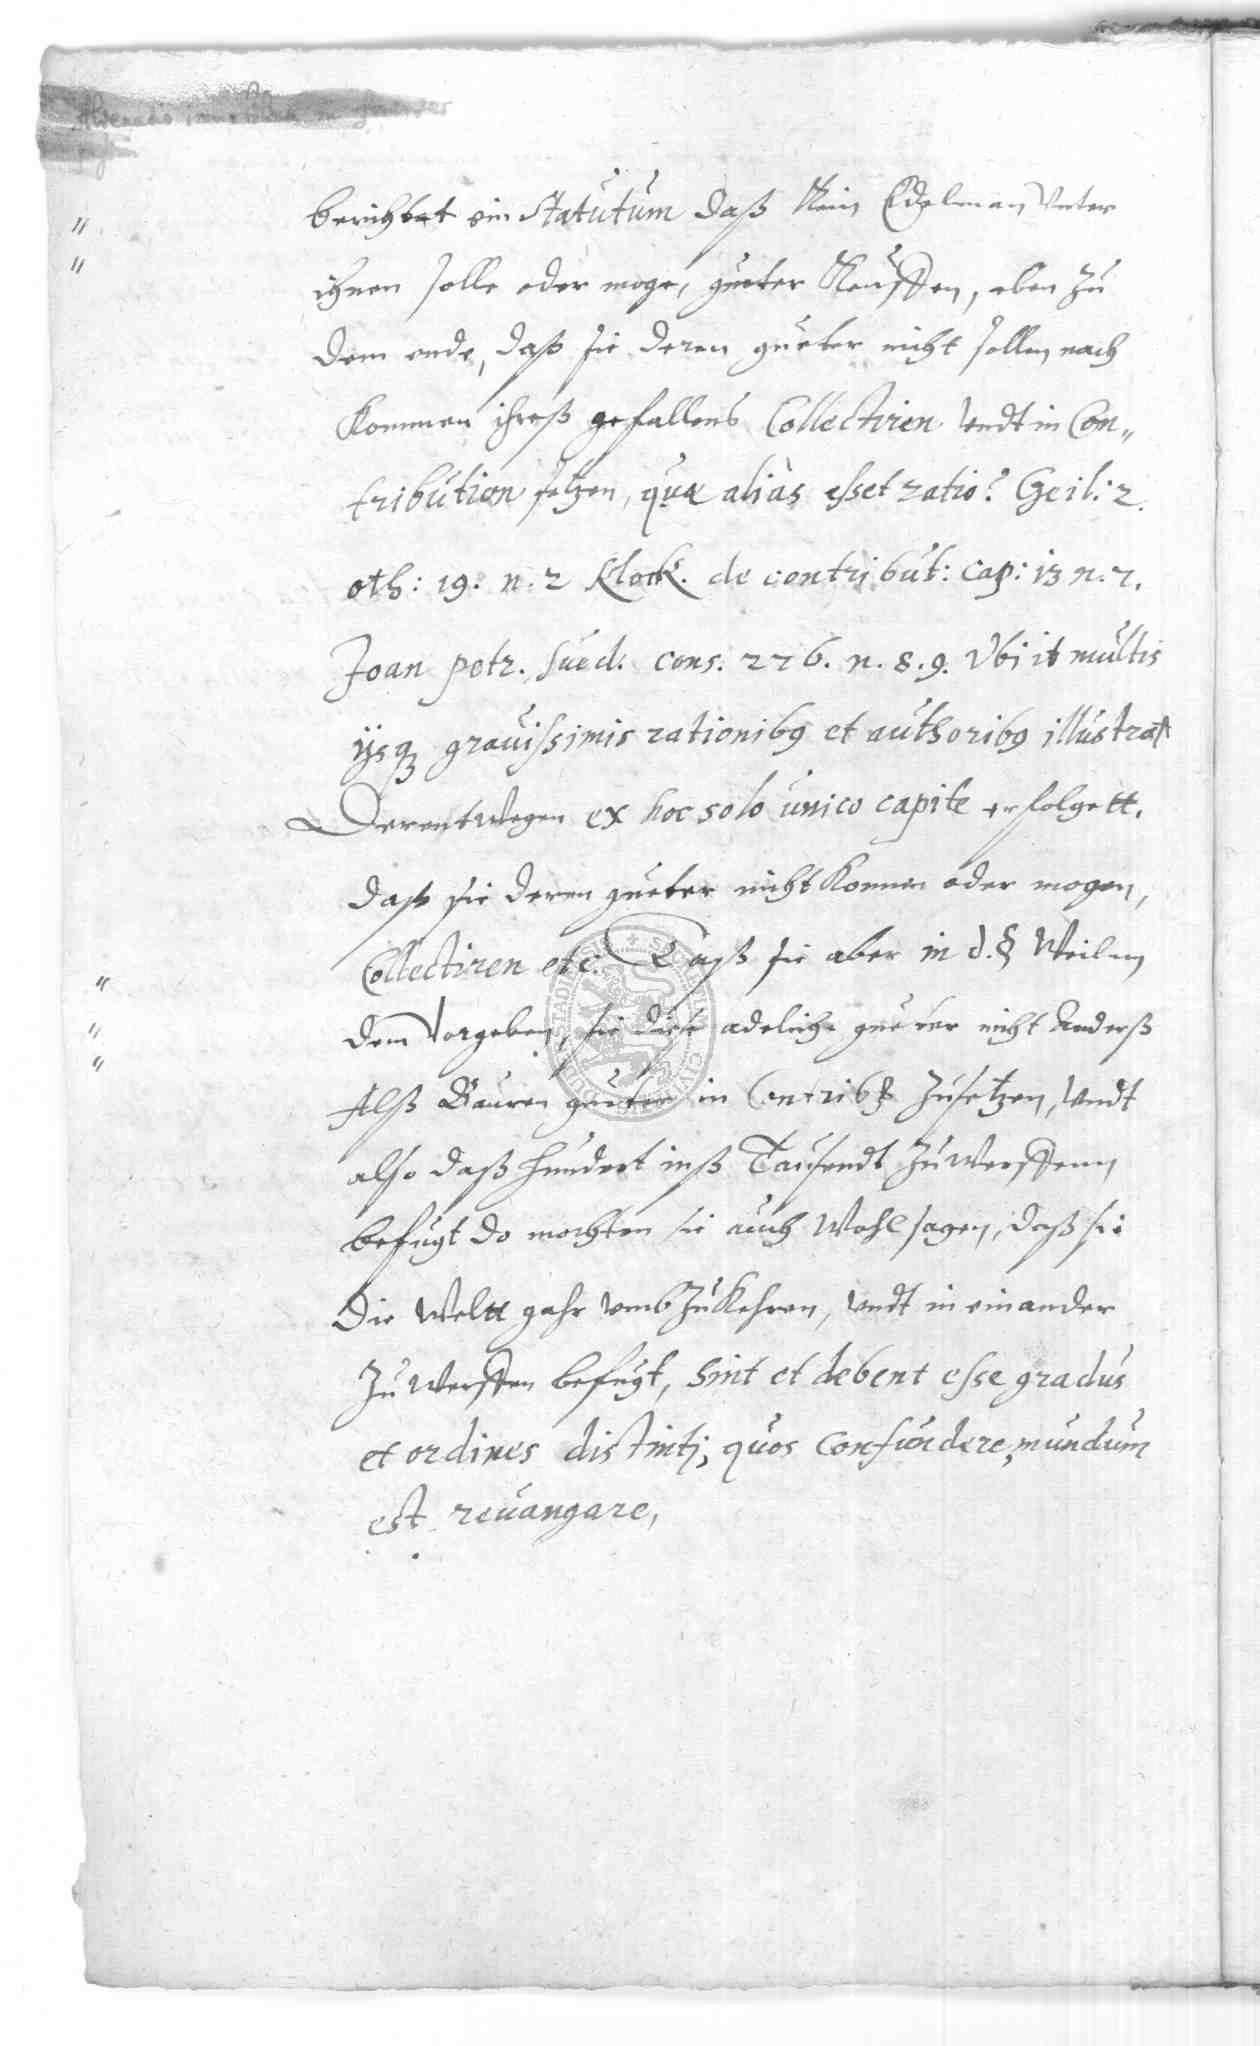 berichtet ein Statutum daß Kein Edelman Unter
ihnen solle oder moge, gueter Kauffen, eben zu
dem ende, daß sie deren gueter nicht sollen nach
Kommen ihreß gefallens Collectiren Undt in Con„
tribution setzen, quæ aliàs esset ratio? Geil: 2.
oth: 19. n. 2 Klock. de contribut: cap: 13 n. 7.
Joan petr. sued. cons. 226. n. 8. 9. Vbi it multis
ijsq grauissimis rationibq et authoribq illustrat
Derentwegen ex hoc solo unico capite erfolgett.
daß sie deren gueter nicht Konnen oder mogen,
Collectiren etc. Daß sie aber in d. § Weilen
dem Vorgeben, sie diese adeliche gueter nicht Anderß
Alß Bauren gueter in Contrib zusetzen, Undt
also daß hundert inß Tausendt zu werffenn
befugt do mochten sie auch Wohl sagen, daß sie
Die Weltt gahr Umb zu Kehren, Undt in einander
zu Werffen befugt, Sint et debent esse gradus
et ordines distinti, quos confundere, mundum
est reuangare,